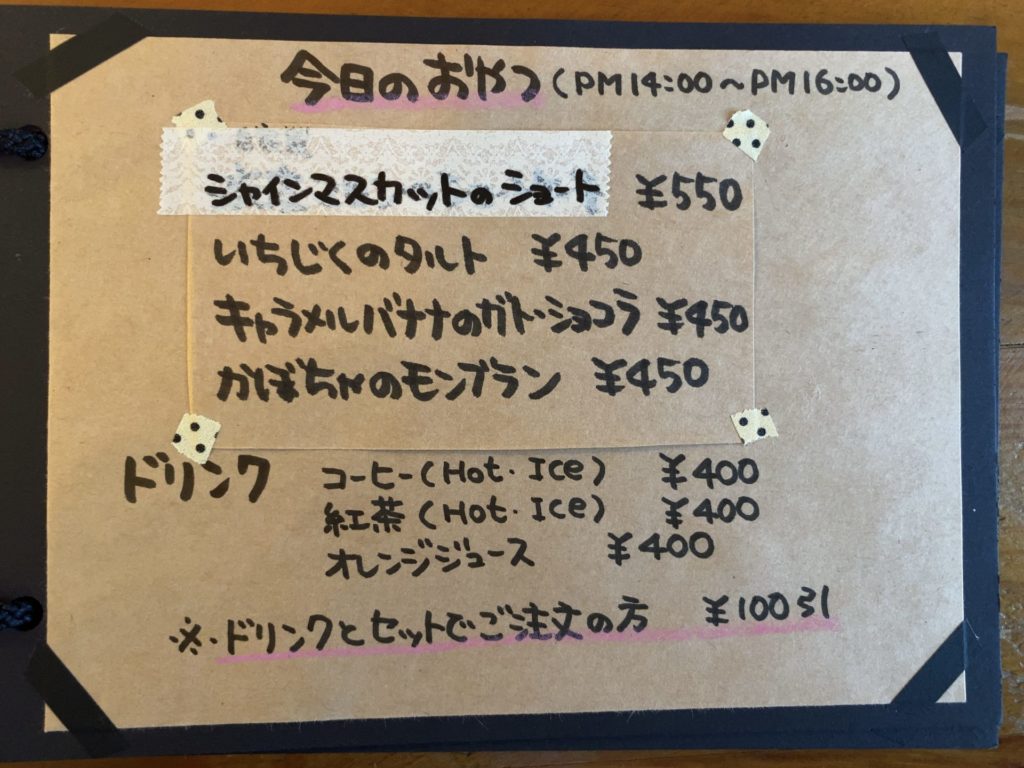 今日のおやつ (PM14:00〜PM16:00)
シャインマスカットのショート ¥550
いちじくのタルト ¥450
キャラメルバナナのガトーショコラ ¥450
かぼちゃのモンブラン ¥450
ドリンク コーヒー(Hot・Ice) ¥400
紅茶(Hot・Ice) ¥400
オレンジジュース ¥400
※・ドリンクとセットでご注文の方 ¥100引